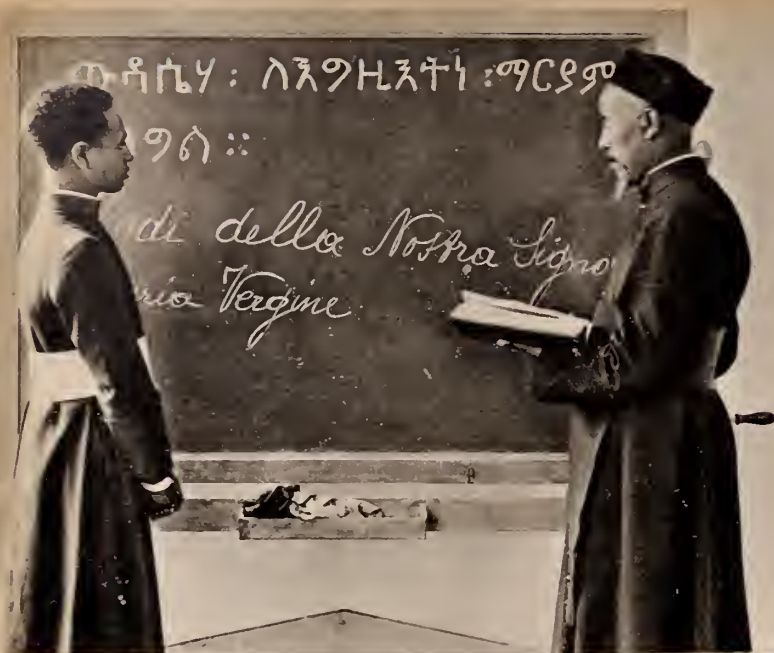 ውዳሴሃ ፡ ለእግዚእትነ ፡ ማርያም
ግል ።
di della Nostra Signo
ria Vergine